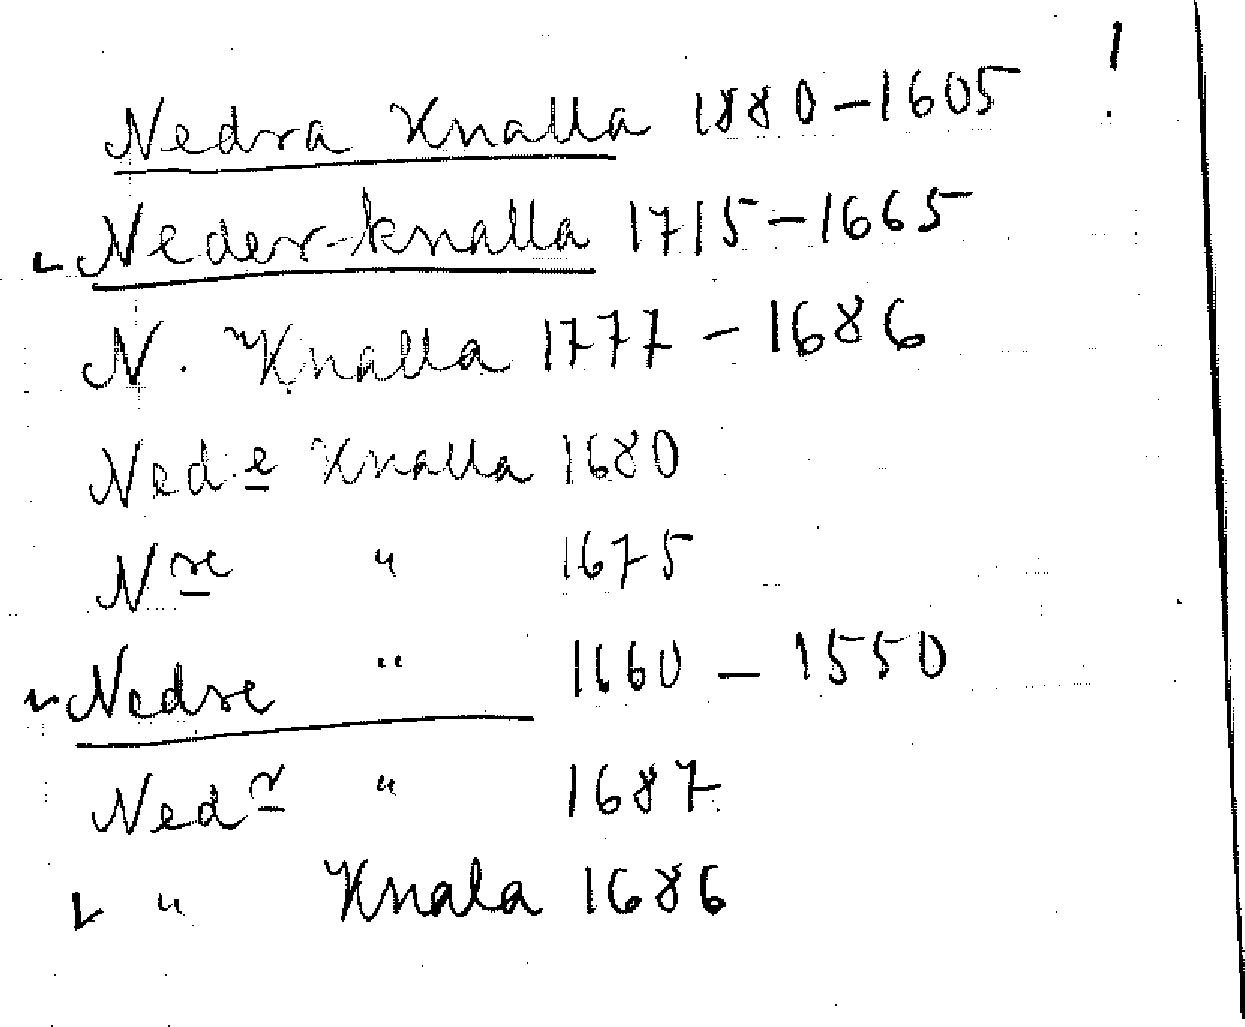 !
Nedra Knalla 1880-1605
Neder-knalla 1715-1665
N. Knalla 1777-1686
Ned e Knalla 1680
N re " 1675
Nedre " 1660-1550
Ned r " 1687
" Knala 1686